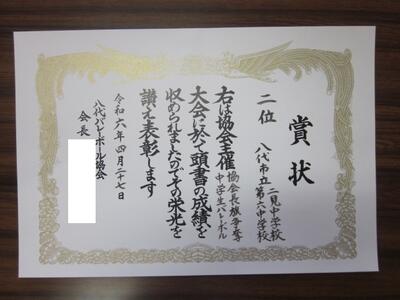 賞状
二位
八代市立二見中学校
第六中学校
右は協会主催協会長旗争奪
中学生バレーボール
大会に於て頭書の成績を
収められましたのでその栄光を
讃え表彰します
令和六年四月二十七日
八代バレーボール協会
会長